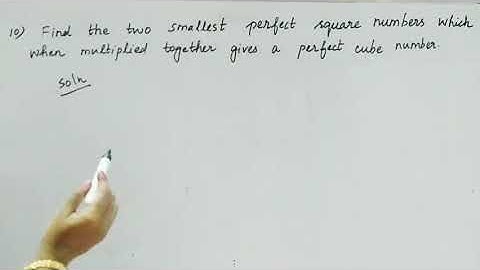 10) Find the two smallest perfect square numbers which
when multiplied together gives a perfect cube number.
Soln